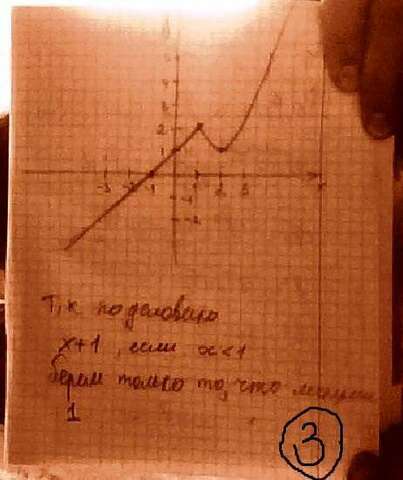 2
1
-3 -2 -1 2 3
-1
-2
Т,к по условию
x+1, если x<1
берем только то, что меньше
1
3